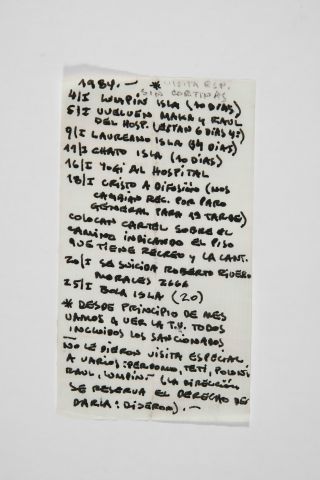 1984.— * VISITA ESP.
SIN CORTINAS
4/I LUMPÍN ISLA (10 DÍAS)
5/I VUELVEN MAKA y RAUL
DEL HOSP. (ESTAN 6 DIAS
9/I LAUREANO ISLA (14 DÍAS)
11/I CHATO ISLA (10 DÍAS)
16/I YOGI AL HOSPITAL
18/I CRISTO A DIFUSIÓN (NOS
CAMBIAN REC. POR PARO
GENERAL PARA 19 TARDE)
COLOCAN CARTEL SOBRE EL
CAMINO INDICANDO EL PISO
QUE TIENE RECREO y LA CANT.
20/I SE SUICIDA ROBERTO RIVERO
MORALES 2666
25/I BOLA ISLA (20)
* DESDE PRINCIPIO DE MES
VAMOS A VER LA T.V. TODOS
INCLUIDOS LOS SANCIONADOS
— NO LE DIERON VISITA ESPECIAL
A VARIOS: PERDOMO, TETÍ, POLONI,
RAUL, LUMPÍN— (LA DIRECCIÓN
SE RESERVA EL DERECHO DE
DARLA: DIJERON).—